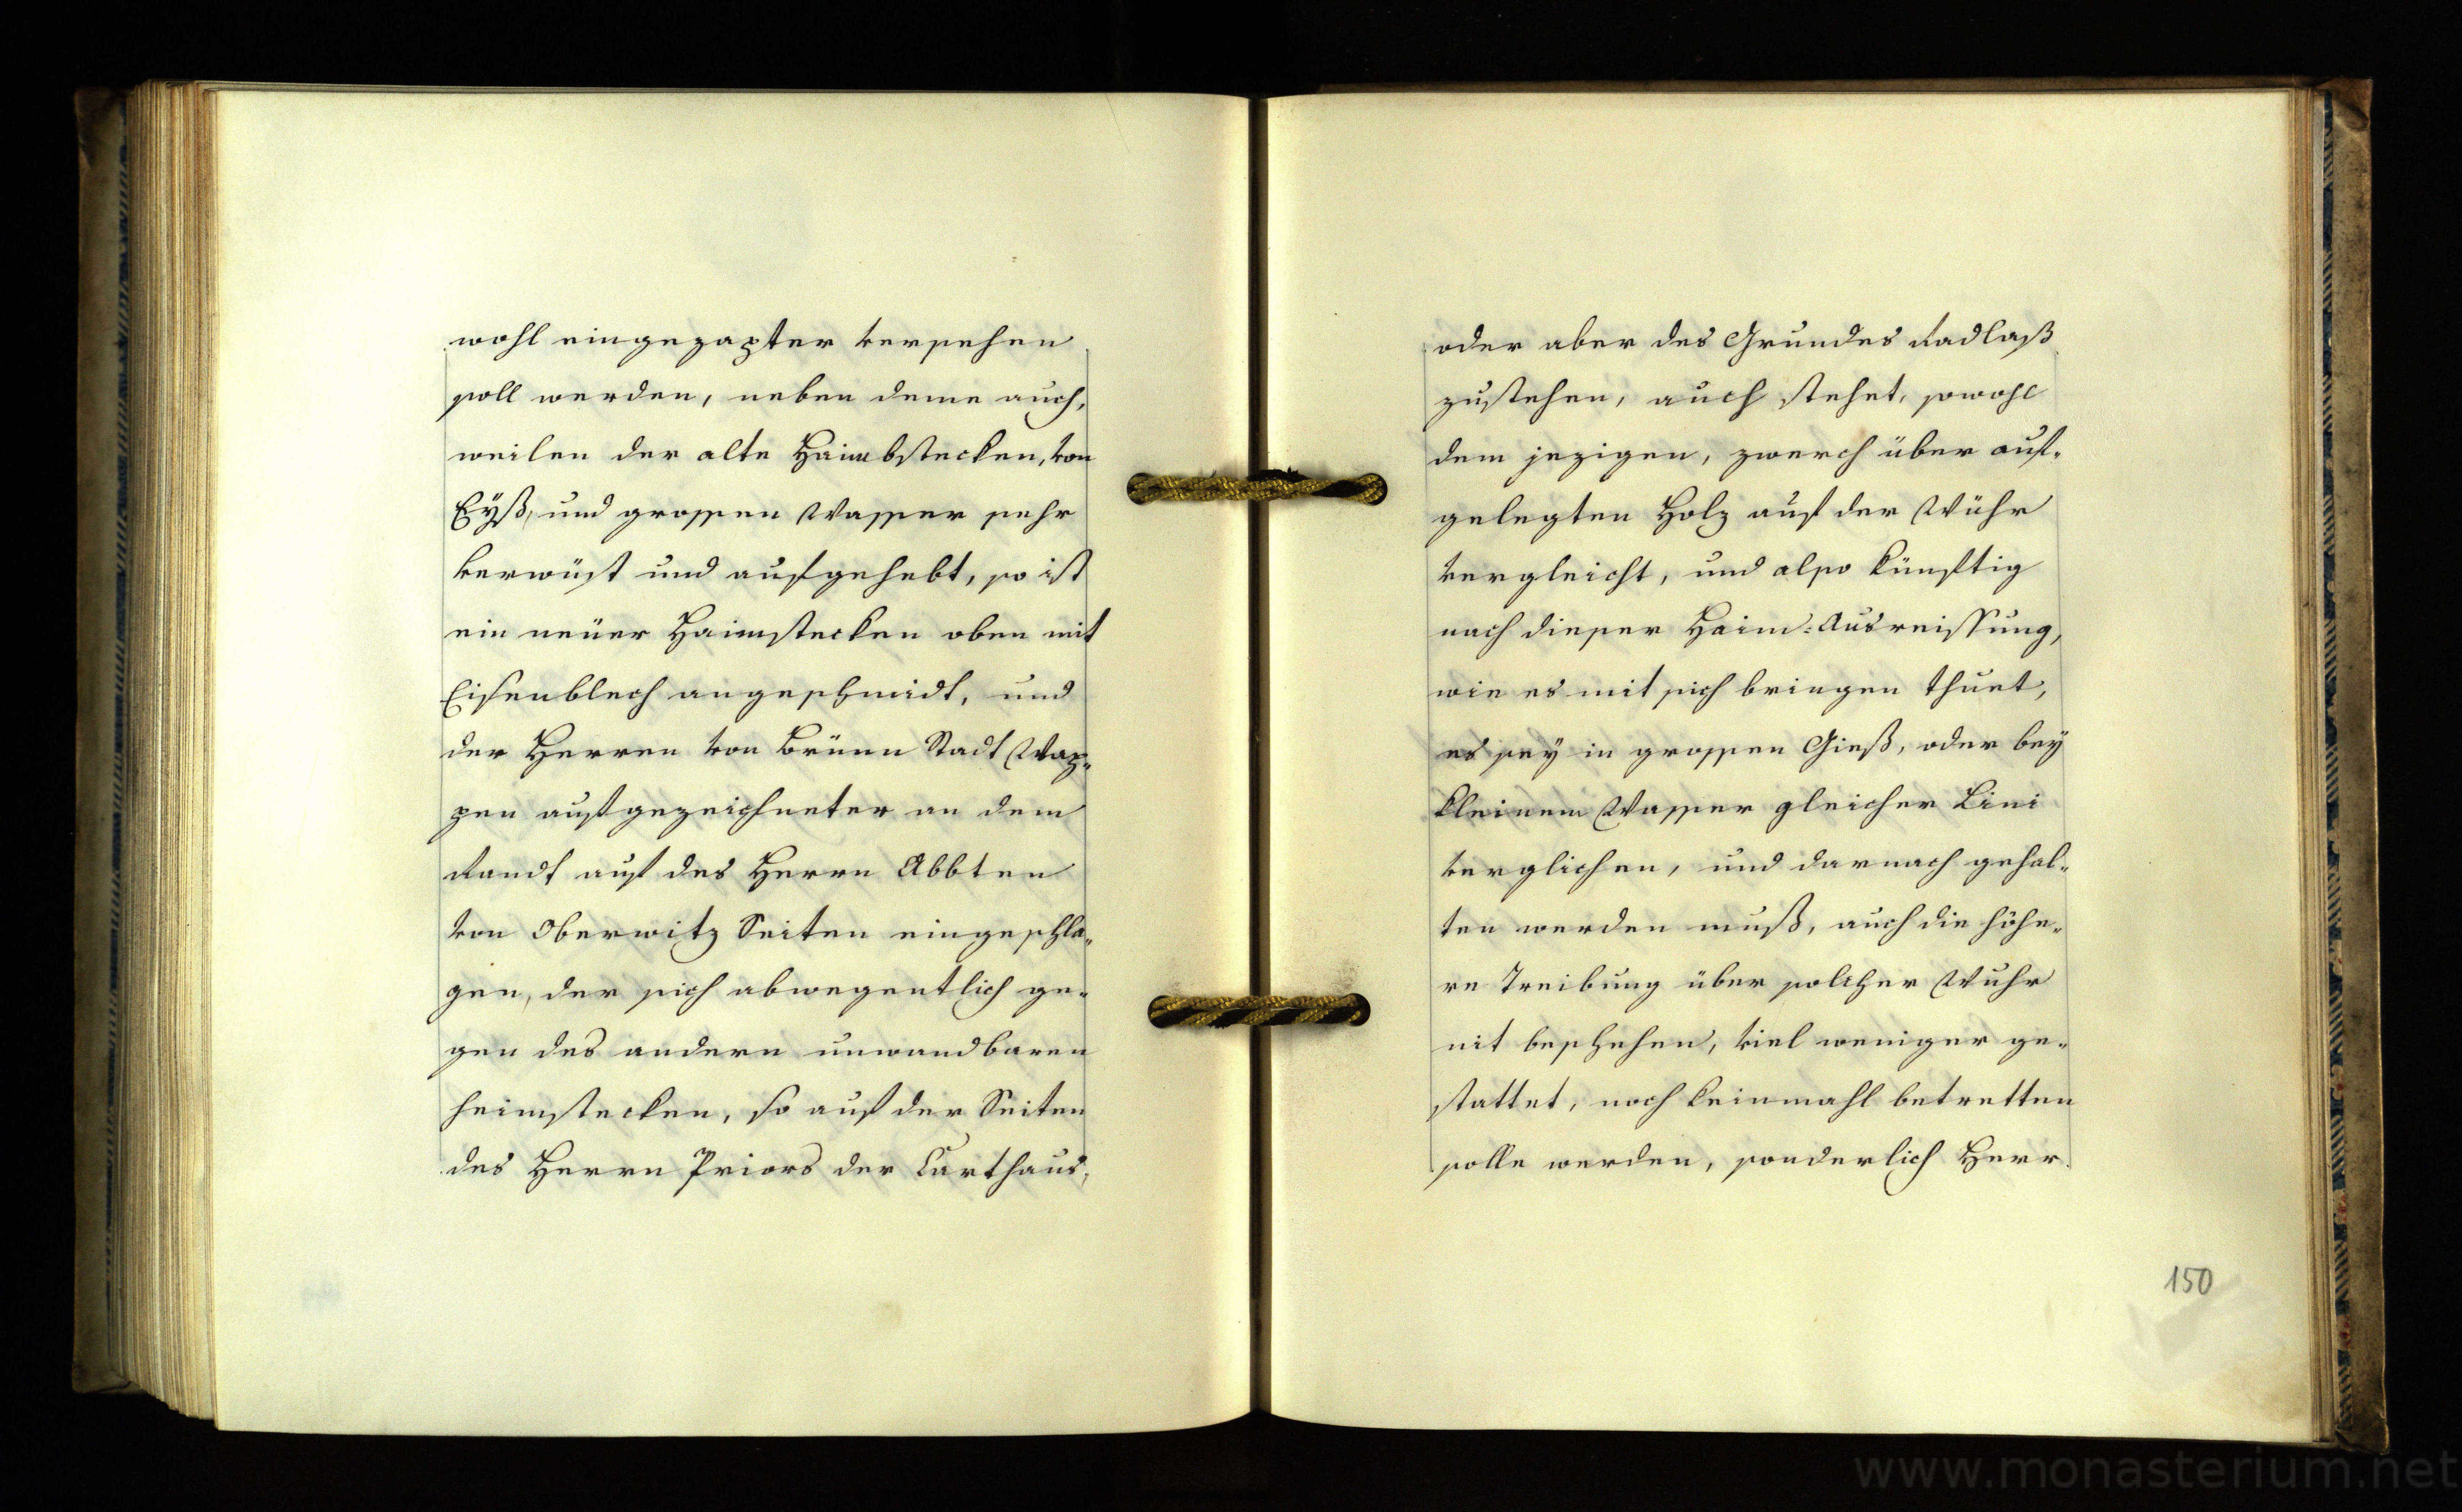 wohl eingezapter versehen
soll werden, neben deme auch,
weilen der alte Haimbstecken, von
Eÿß, und grossen Wasser sehr
verwüst und aufgehebt, so ist
ein neüer Haimstecken oben mit
Eisenblech angeschmidt, und
der Herren von Brünn Stadt Wap-
pen aufgezeichneter an dem
Randt auf des Herrn Abbten
von Obrowitz Seiten eingeschla-
gen, der sich abwegentlich ge-
gen des andern unwandbaren
heimstecken, so auf der Seiten
des Herrn Priors der Carthaus,
oder aber des Grundes Radlaß
zustehen, auch stehet, sowohl
dem jezigen, zwerch über auf-
gelegten Holz auf der Wühr
vergleicht, und also künftig
nach dieser Haim-Ausreissung,
wie es mit sich bringen thuet,
es seÿ in grossen Gieß, oder beÿ
kleinem Wasser gleicher Lini
verglichen, und darnach gehal-
ten werden muß, auch die höhe-
re Treibung über solcher Wuhr
nit beschehen, viel weniger ge-
stattet, noch keinmahl betretten
solle werden, sonderlich Herr
150
www.monasterium.net